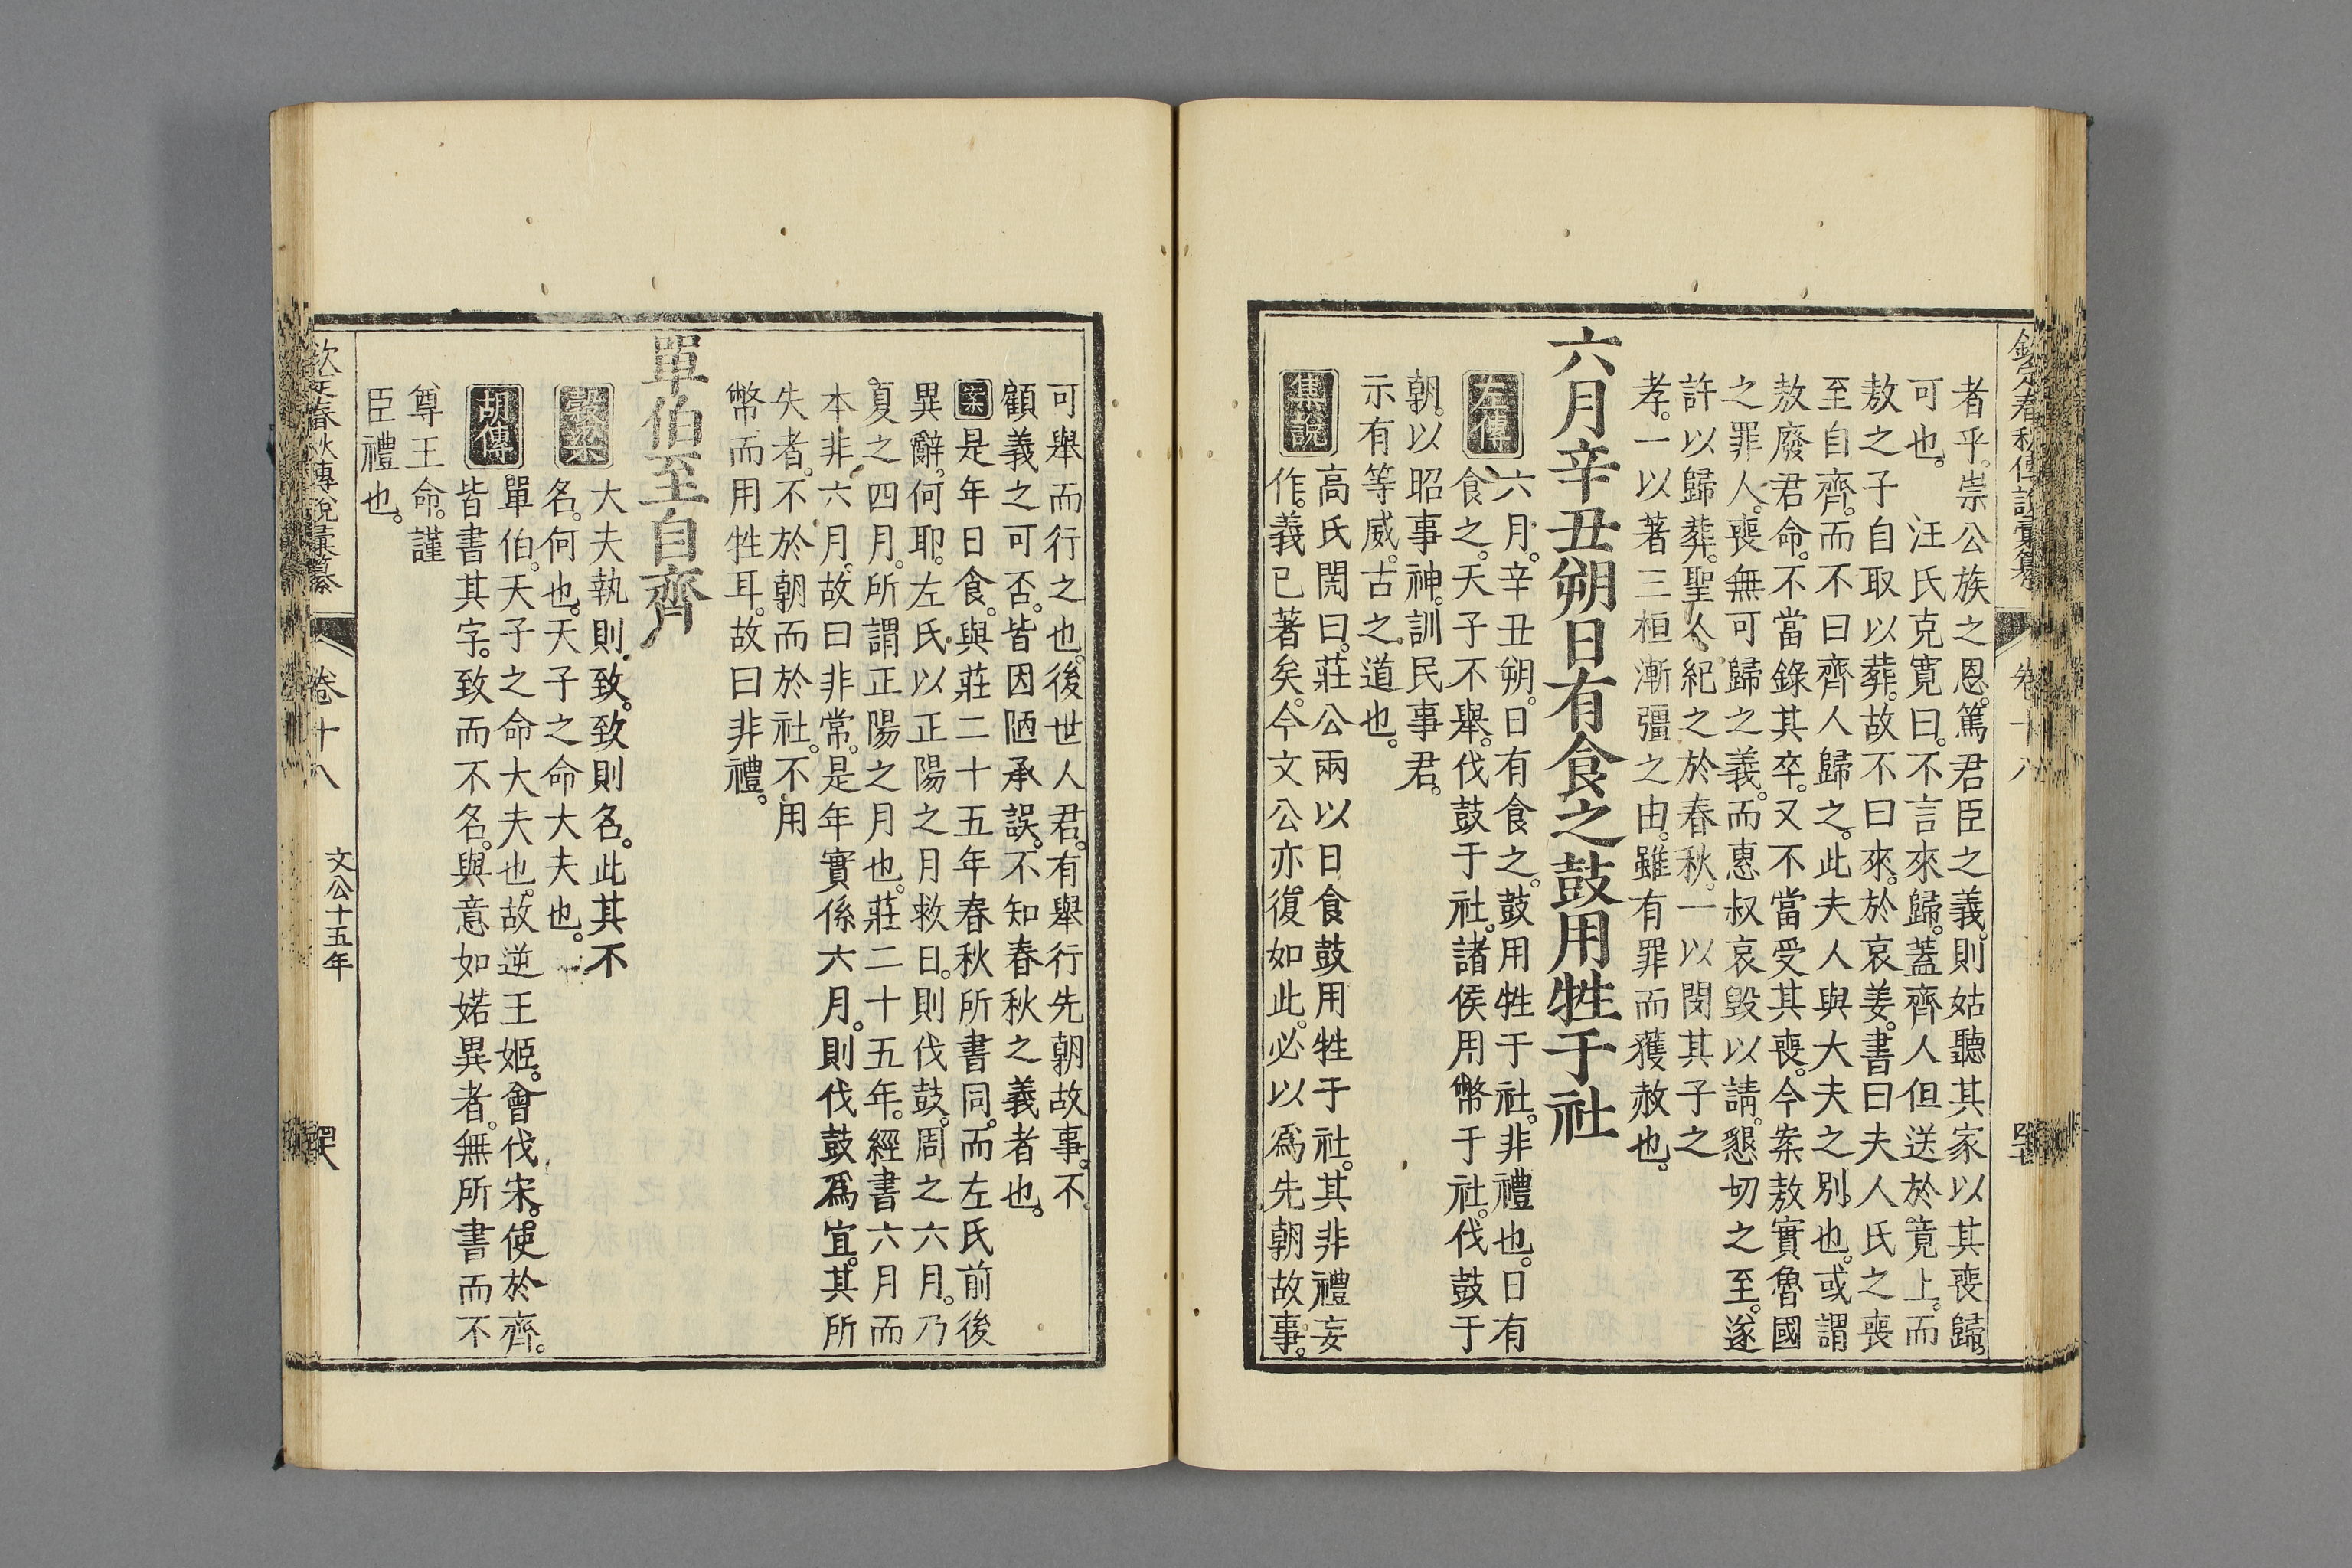 欽定春秋傳說彙纂 卷十八
者乎。崇公族之恩。篤君臣之義。則姑聽其家以其喪歸。
可也。 汪氏克寬曰。不言來歸。蓋齊人但送於竟上。而
敖之子自取以葬。故不曰來。於哀姜。書曰夫人氏之喪
至自齊。而不曰齊人歸之。此夫人與大夫之別也。或謂
敖廢君命。不當錄其卒。又不當受其喪。今案敖實魯國
之罪人。喪無可歸之義。而惠叔哀毀以請。懇切之至。遂
許以歸葬。聖人紀之於春秋。一以閔其子之
孝。一以著三桓漸彊之由。雖有罪而獲赦也。
六月辛丑朔日有食之鼓用牲于社
左傳 六月。辛丑朔。日有食之。鼓用牲于社。非禮也。日有
食之。天子不舉。伐鼓于社。諸侯用幣于社。伐鼓于
朝。以昭事神。訓民事君。
示有等威。古之道也。
集說 高氏閌曰。莊公兩以日食鼓用牲于社。其非禮妄
作。義已著矣。今文公亦復如此。必以爲先朝故事。
可舉而行之也。後世人君。有舉行先朝故事。不
顧義之可否。皆因陋承誤。不知春秋之義者也。
案是年日食。與莊二十五年春秋所書同。而左氏前後
異辭。何耶。左氏以正陽之月救日。則伐鼓。周之六月。乃
夏之四月。所謂正陽之月也。莊二十五年。經書六月而
本非六月。故曰非常。是年實係六月。則伐鼓爲宜。其所
失者。不於朝而於社。不用
幣而用牲耳。故曰非禮。
單伯至自齊
穀梁 大夫執則致。致則名。此其不
名。何也。天子之命大夫也。
胡傳 單伯。天子之命大夫也。故逆王姬。會伐宋。使於齊。
皆書其字。致而不名。與意如婼異者。無所書而不
尊王命。謹
臣禮也。
欽定春秋傳說彙纂 卷十八 文公十五年